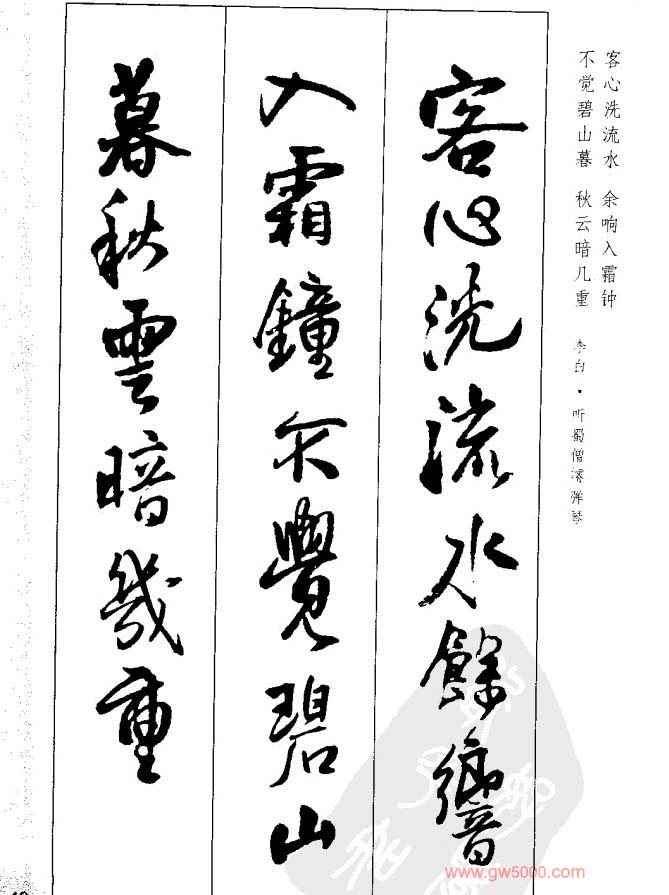 客心洗流水 余响入霜钟
不觉碧山暮 秋云暗几重
李白·听蜀僧濬弹琴
客心洗流水餘響
入霜鐘不覺碧山
暮秋雲暗幾重
www.gw5000.com